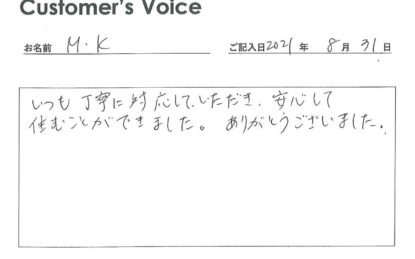 Customer's Voice
お名前 M.K ご記入日 2021 年 8 月 31 日
いつも丁寧に対応していただき、安心して
住むことができました。ありがとうございました。